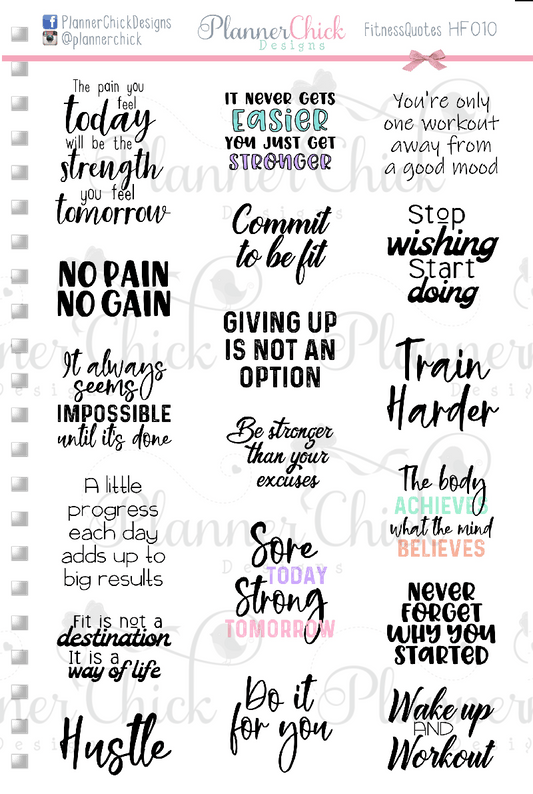 PlannerChickDesigns
@plannerchick
PlannerChick
Designs
FitnessQuotes HF010
The pain you
feel
today
will be the
strength
you feel
tomorrow
NO PAIN
NO GAIN
It always
seems
IMPOSSIBLE
until it's done
A little
progress
each day
adds up to
big results
Fit is not a
destination
It is a
way of life
Hustle
IT NEVER GETS
EASIER
YOU JUST GET
STRONGER
Commit
to be fit
GIVING UP
IS NOT AN
OPTION
Be stronger
than your
excuses
Sore
TODAY
Strong
TOMORROW
Do it
for you
You're only
one workout
away from
a good mood
Stop
wishing
Start
doing
Train
Harder
The body
ACHIEVES
what the mind
BELIEVES
NEVER
FORGET
WHY YOU
STARTED
Wake up
AND
Workout
PlannerChick
Designs
PlannerChick
Designs
PlannerChick
Designs
PlannerChick
Designs